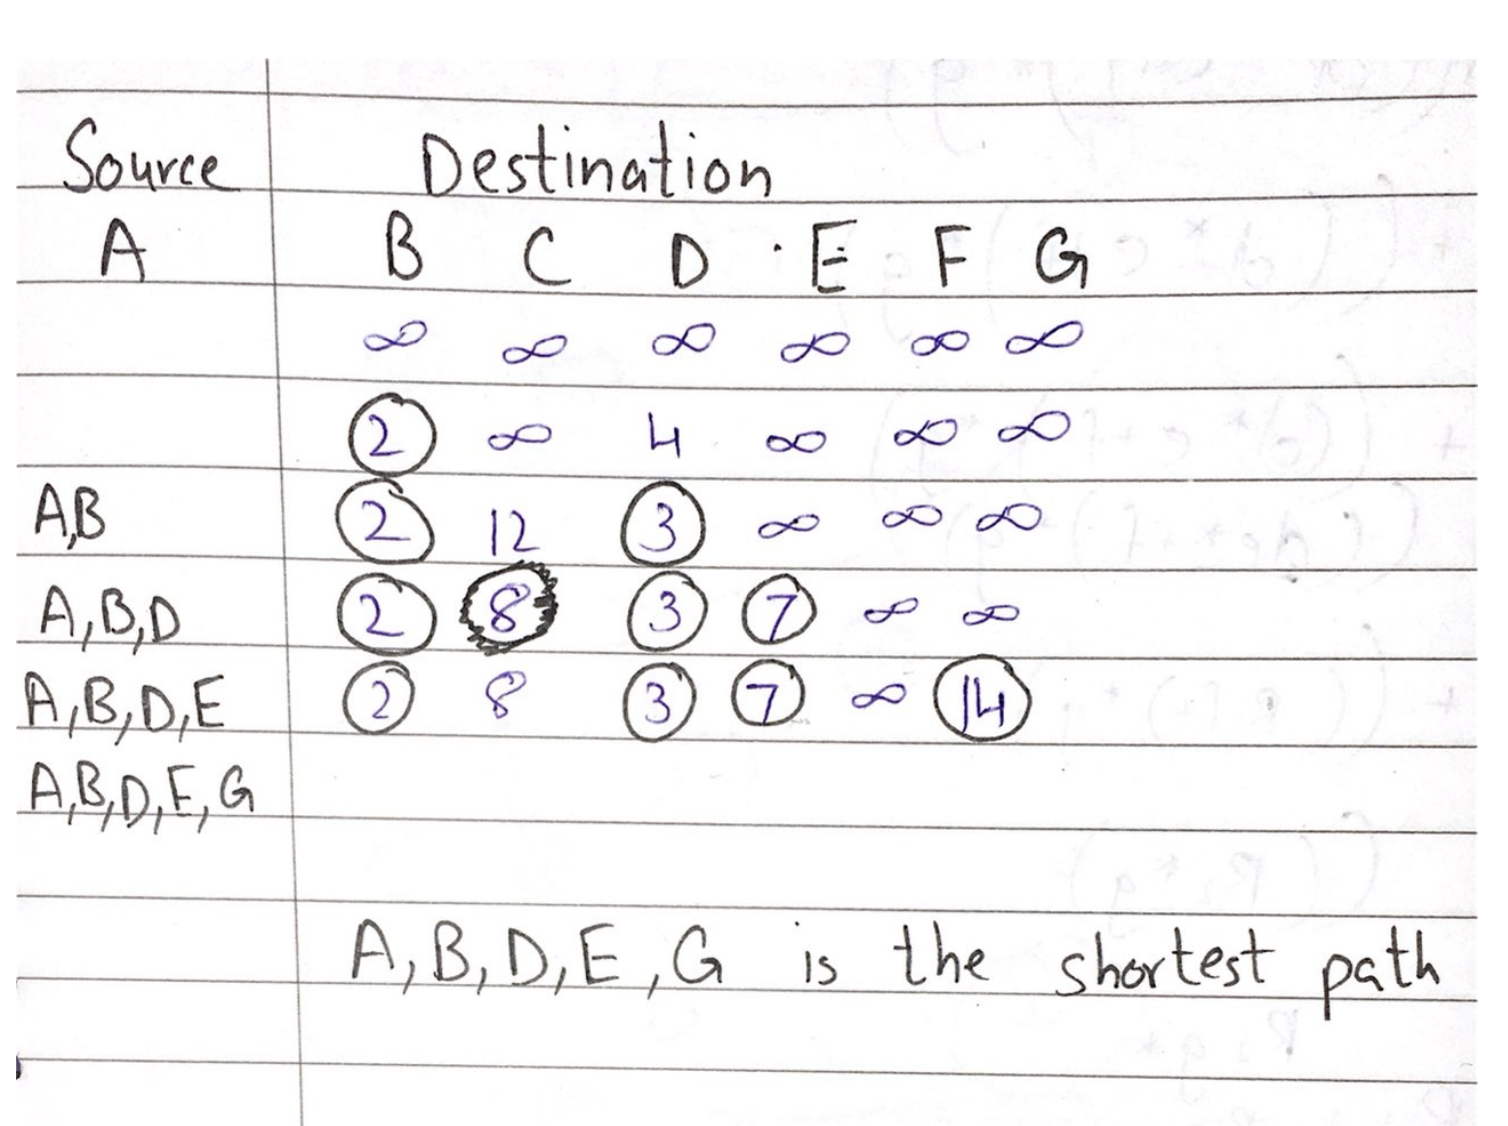 Source Destination
A B C D E F G
∞ ∞ ∞ ∞ ∞ ∞
2 ∞ 4 ∞ ∞ ∞
A,B 2 12 3 ∞ ∞ ∞
A,B,D 2 8 3 7 ∞ ∞
A,B,D,E 2 8 3 7 ∞ 14
A,B,D,E,G
A,B,D,E,G is the shortest path